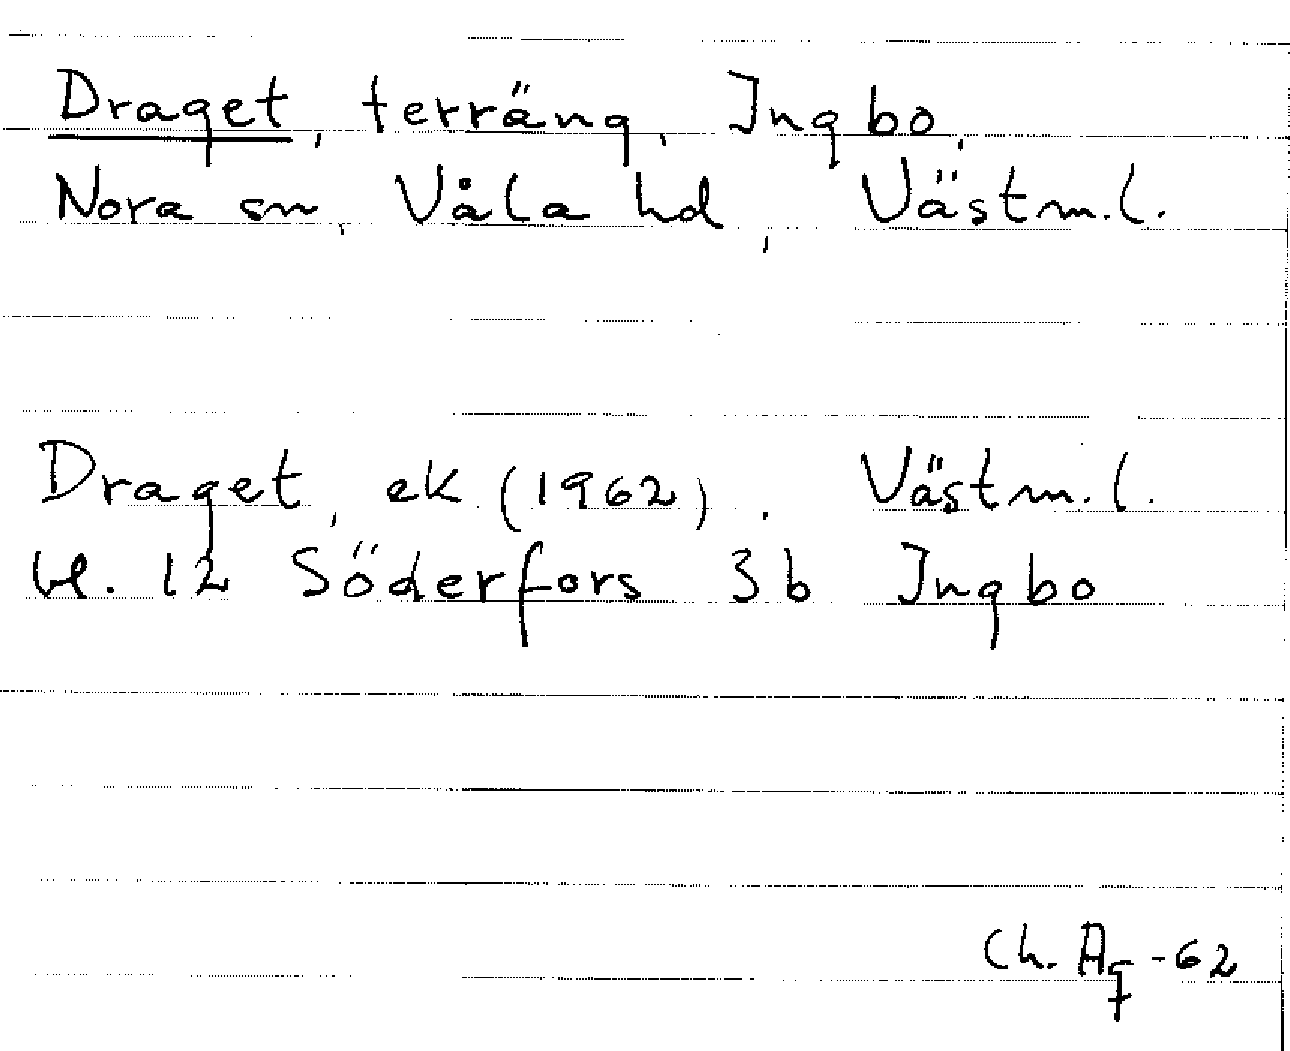 Draget, terräng, Ingbo,
Nora sn, Våla hd, Västm.l.
Draget, ek (1962). Västm.l.
bl. 12 Söderfors 3b Ingbo
Ch. -62